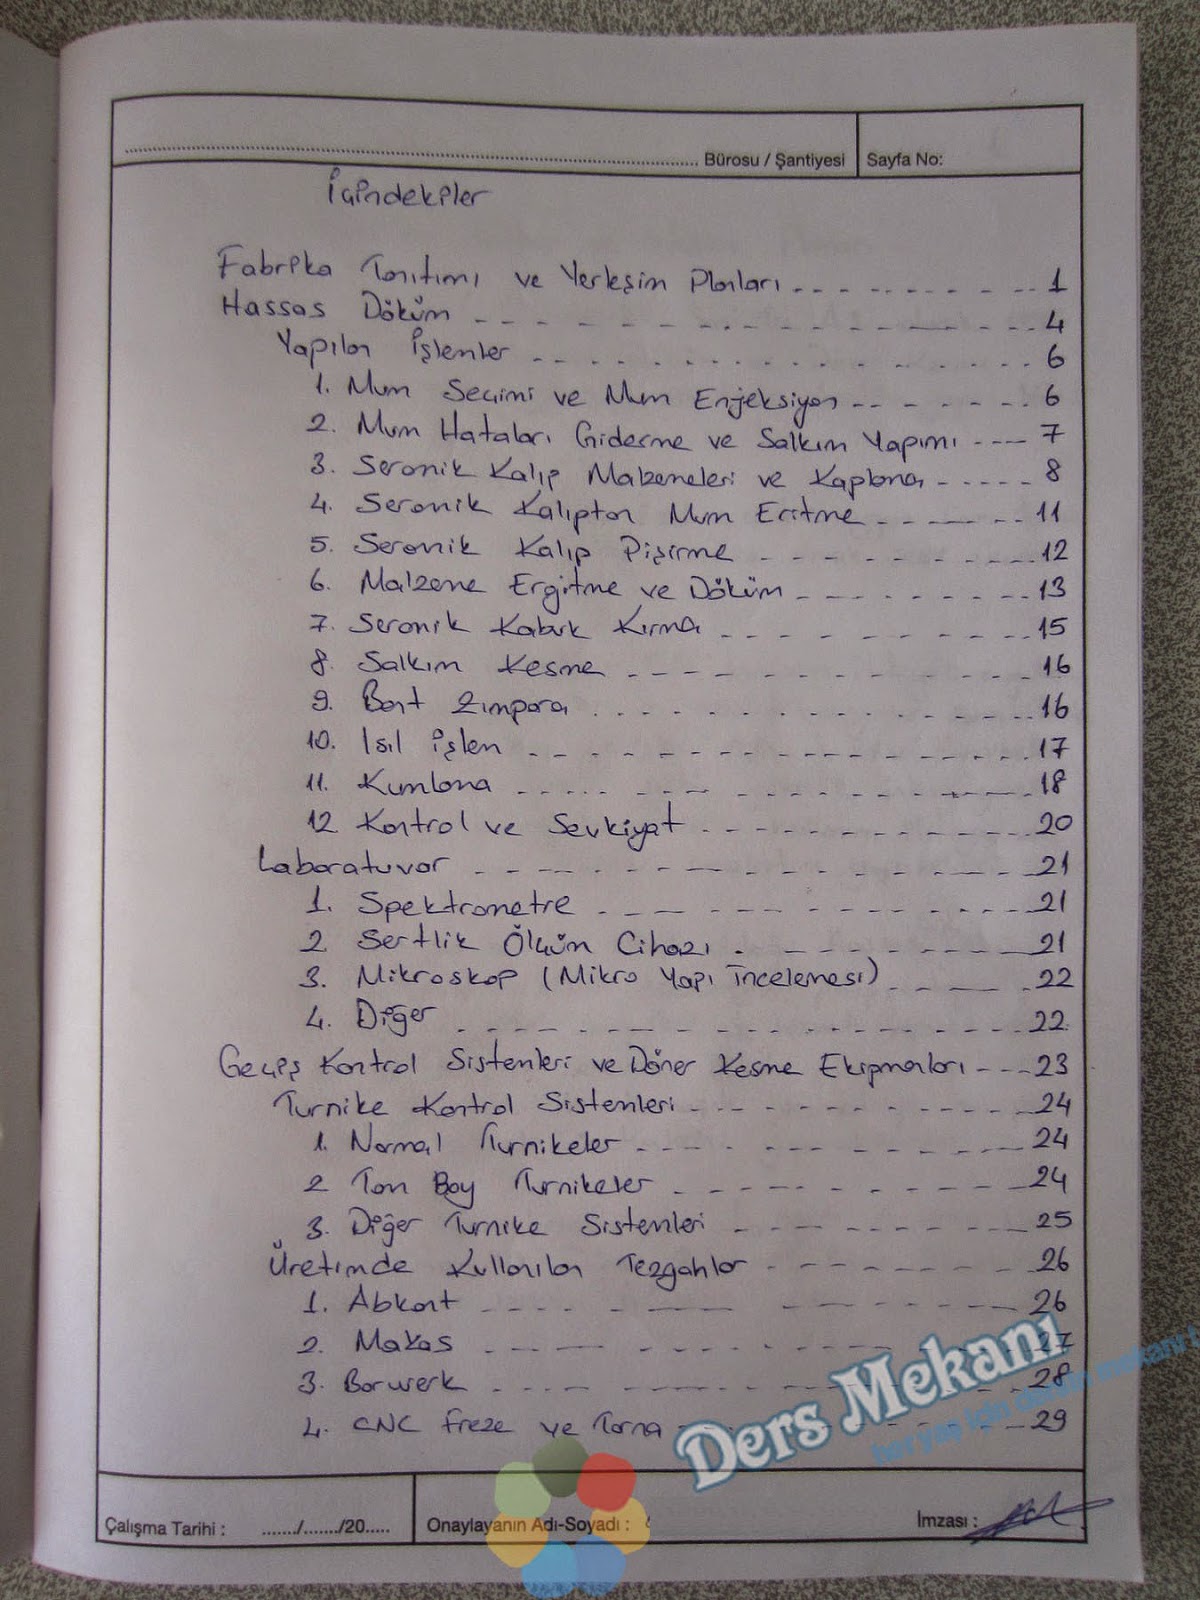 ........ Bürosu / Şantiyesi Sayfa No:
İçindekiler
Fabrika Tanıtımı ve Yerleşim Planları 1
Hassas Döküm 4
Yapılan İşlemler 6
1. Mum Seçimi ve Mum Enjeksiyon 6
2. Mum Hataları Giderme ve Salkım Yapımı 7
3. Seramik Kalıp Malzemeleri ve Kaplama 8
4. Seramik Kalıptan Mum Eritme 11
5. Seramik Kalıp Pişirme 12
6. Malzeme Ergitme ve Döküm 13
7. Seramik Kabuk Kırma 15
8. Salkım Kesme 16
9. Bant Zımpara 16
10. Isıl İşlem 17
11. Kumlama 18
12 Kontrol ve Sevkiyat 20
Laboratuvar 21
1. Spektrometre 21
2. Sertlik Ölçüm Cihazı 21
3. Mikroskop (Mikro Yapı İncelemesi) 22
4. Diğer 22
Geçiş Kontrol Sistemleri ve Döner Kesme Ekipmanları 23
Turnike Kontrol Sistemleri 24
1. Normal Turnikeler 24
2 Tam Boy Turnikeler 24
3. Diğer Turnike Sistemleri 25
Üretimde Kullanılan Tezgahlar 26
1. Abkant 26
2. Makas 27
3. Borwerk 28
4. CNC Freze ve Torna 29
Ders Mekanı
her yaş için dersin mekanı
Çalışma Tarihi : ......./......./20..... Onaylayanın Adı-Soyadı : İmzası :